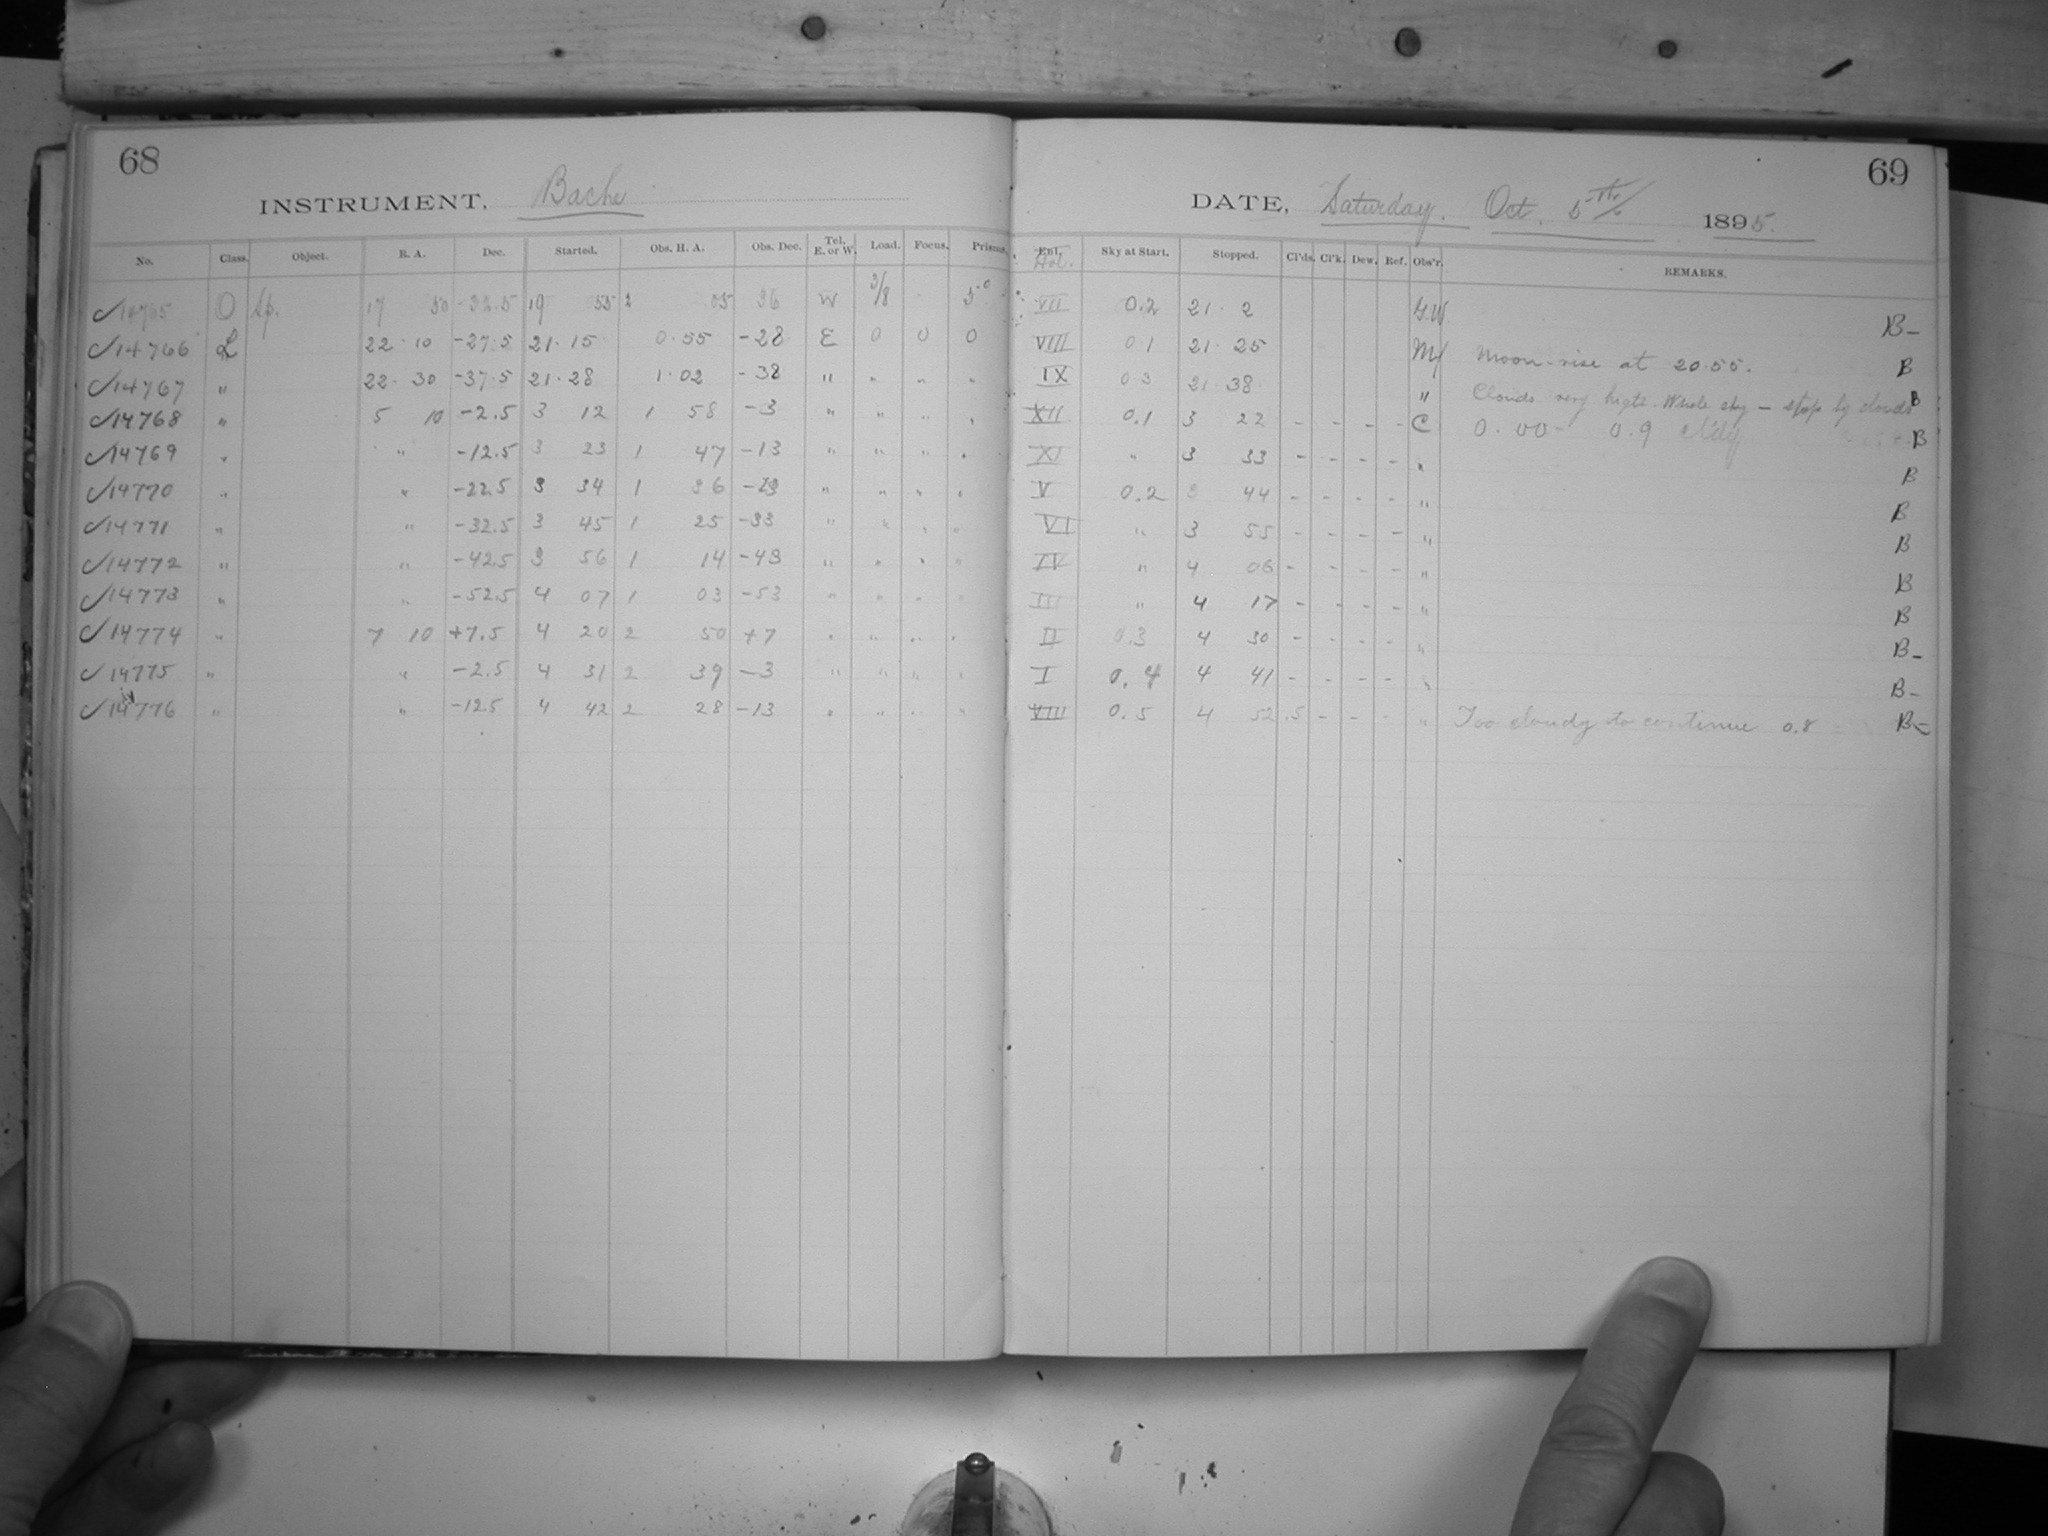 68
INSTRUMENT, Bache
69
DATE, Saturday. Oct. 5th/ 1895.
No. Class. Object. R. A. Dec. Started. Obs. H. A. Obs. Dec. Tel. E. or W. Load. Focus. Prisms. Ent. Sky at Start. Stopped. Cl'ds. Cl'k. Dew. Ref. Obs'r. REMARKS.
✓14765 O Sp. 17 50 -32.5 19 55 2 05 36 W 3/8 5·0 VII 0.2 21·2 B-
✓14766 L 22·10 -27.5 21·15 0·55 -28 E 0 0 0 VIII 0.1 21·25 Moon-rise at 20·55. B
✓14767 " 22·30 -37.5 21·28 1·02 -38 " " " " IX 0.3 21·38 " Clouds very high. Whole sky - stop by clouds B
✓14768 " 5 10 -2.5 3 12 1 58 -3 " " " " XII 0.1 3 22 - - - - C 0.00- 0.9 Cl'dy B
✓14769 " " -12.5 3 23 1 47 -13 " " " " XI " 3 33 - - - - " B
✓14770 " " -22.5 3 34 1 36 -23 " " " " V 0.2 3 44 - - - - " B
✓14771 " " -32.5 3 45 1 25 -33 " " " " VI " 3 55 - - - - " B
✓14772 " " -42.5 3 56 1 14 -43 " " " " IV " 4 06 - - - - " B
✓14773 " " -52.5 4 07 1 03 -53 " " " " III " 4 17 - - - - " B
✓14774 " 7 10 +7.5 4 20 2 50 +7 " " " " II 0.3 4 30 - - - - " B-
✓14775 " " -2.5 4 31 2 39 -3 " " " " I 0.4 4 41 - - - - " B-
✓14776 " " -12.5 4 42 2 28 -13 " " " " VIII 0.5 4 52 .5 - - - " Too cloudy to continue 0.8 B-